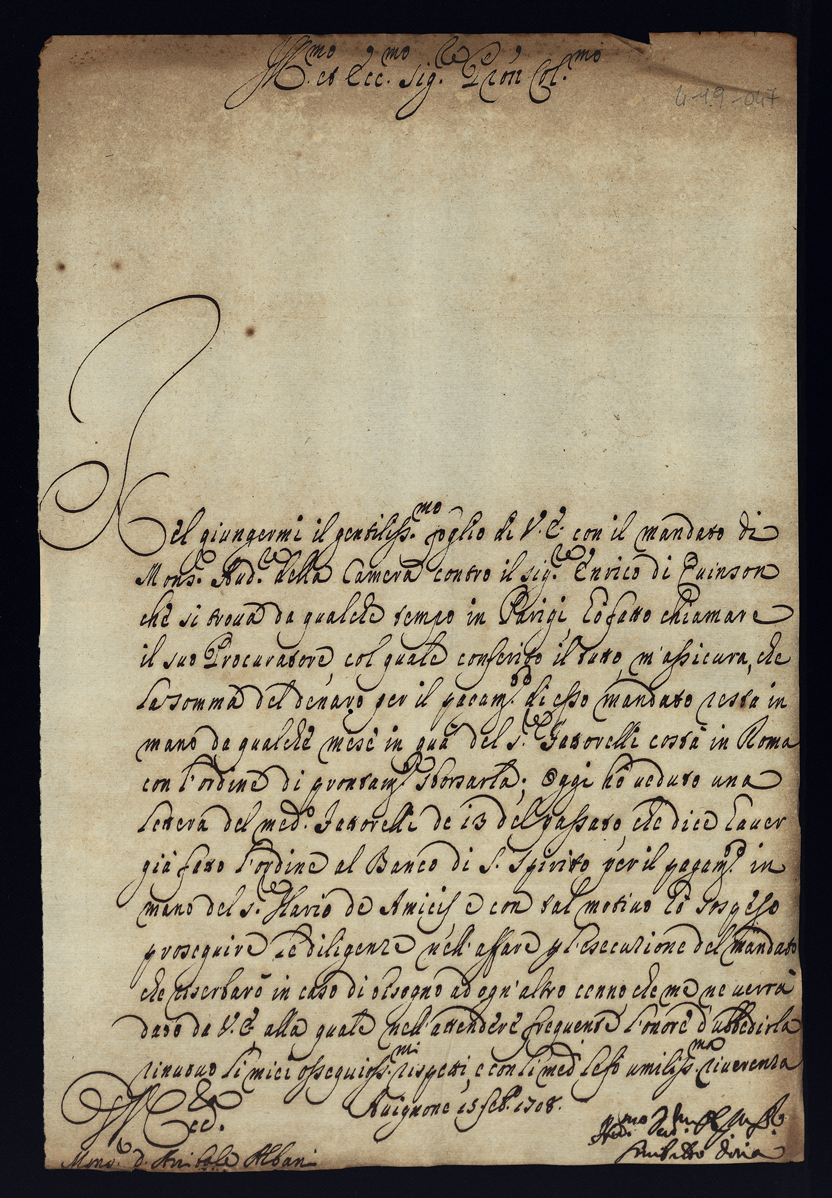 Ill.mo et Ecc.mo Sig.re P.ron Col.mo
4-1.9-047
Nel giungermi il gentiliss.mo foglio di V.E. con il mandato di
Mons.re Aud.re della Camera contro il sig.re Enrico di Quinson
che si troua da qualche tempo in Parigi, hò fatto chiamare
il suo Procuratore col quale conferito il tutto, m'assicura, che
la somma del denaro per il pagam.to di esso mandato resta in
mano da qualche mese in quà del s.re Fattorelli costà in Roma
con l'ordine di prontam.te sborsarla; Oggi hò ueduto una
lettera del med.o Fattorelli de 13 del passato, che dice hauer
già fatto l'ordine al Banco di S. Spirito per il pagam.to in
mano del s.re Flavio de Amicis e con tal motiuo hò sospeso
proseguire le diligenze nell'affare p l'esecuzione del mandato
che riserbarò in caso di bisogno ad ogn'altro cenno che me ne uerrà
dato da V.E. alla quale nell'attendere frequente l'onore d'ubbedirla
rinuouo li miei ossequiosiss.mi rispetti, e con li med. le fò umiliss.ma riuerenza
Auignone 15 feb.o 1708.
Mons.r D. Anibale Albani
Sinibaldo Doria